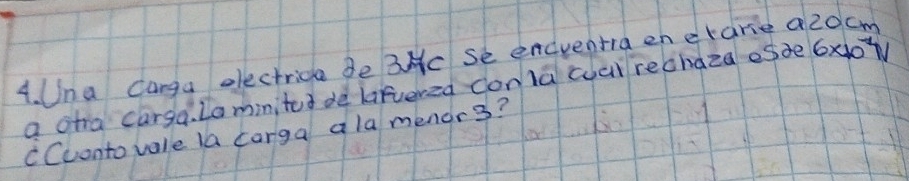 4. Una carga electrica de 3Mc se encventra en el arie a 20cm
a otra carga. La minitud de la fuerza con la cual rechaza es de 6x10⁻⁴N
¿Cuonto vale la carga a la menor 3?